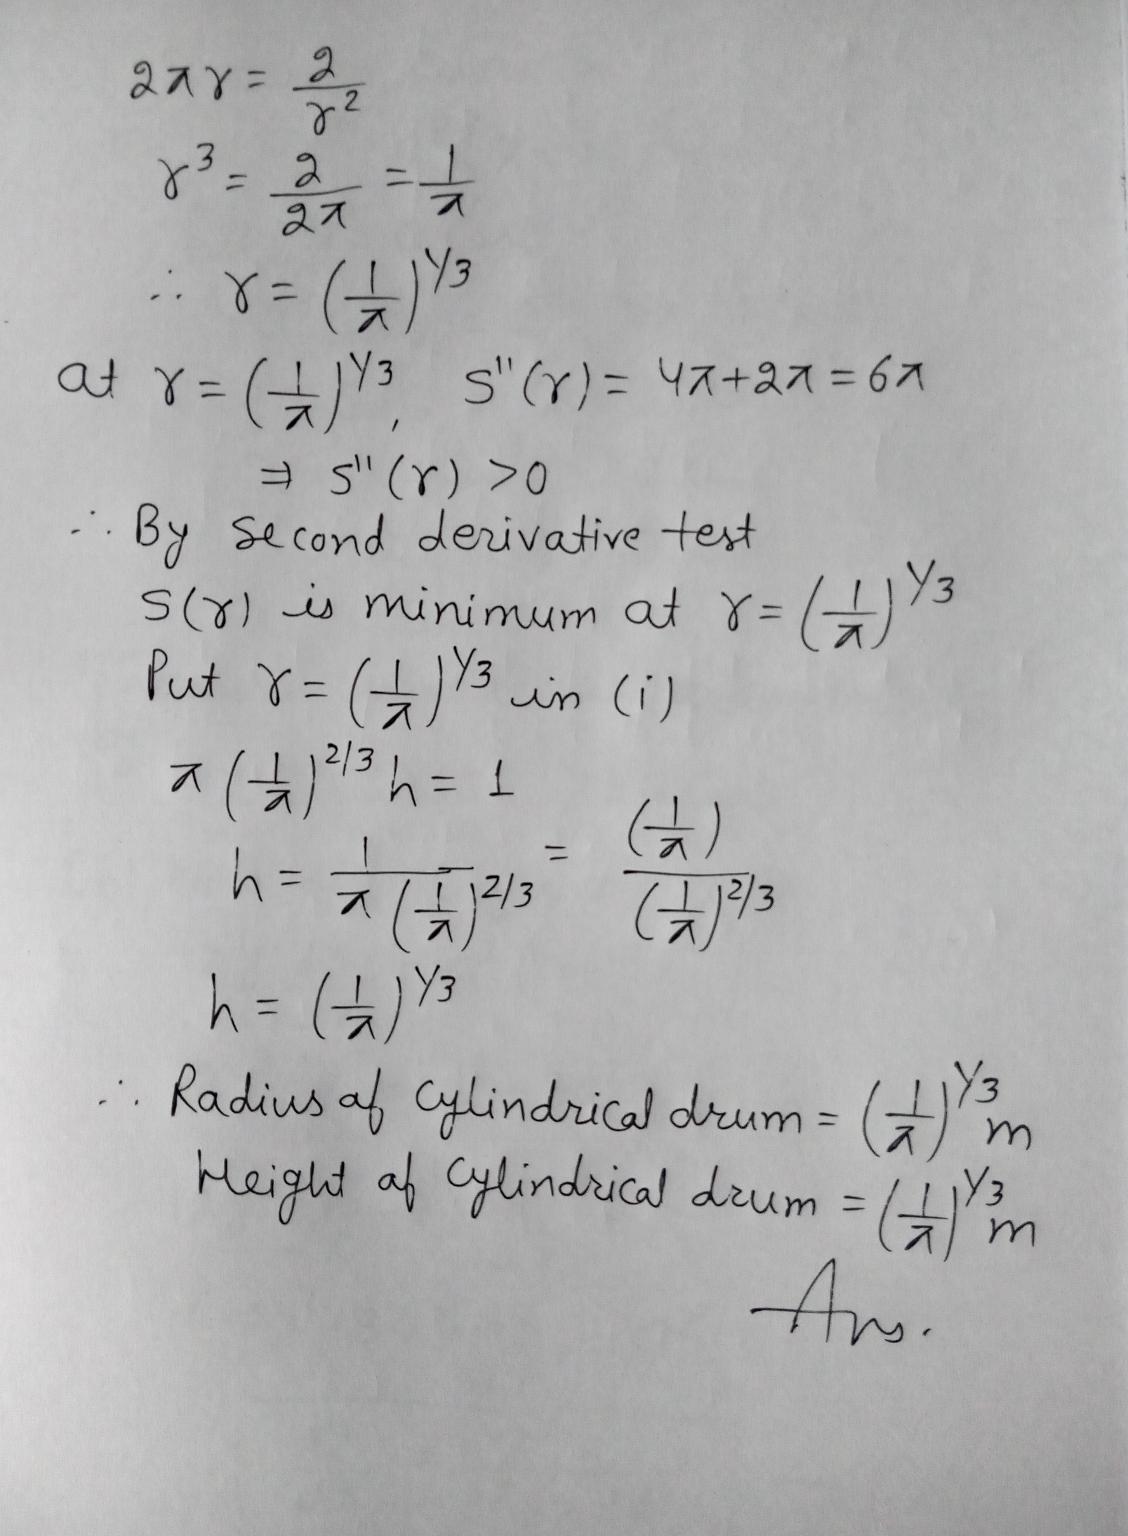 2πr = 2/r²
r³ = 2/2π = 1/π
∴ r = (1/π)^1/3
at r = (1/π)^1/3, s"(r) = 4π+2π = 6π
⇒ s"(r) >0
∴ By second derivative test
S(r) is minimum at r = (1/π)^1/3
Put r = (1/π)^1/3 in (i)
π (1/π)^2/3 h = 1
h = 1/(π (1/π)^2/3) = (1/π)/(1/π)^2/3
h = (1/π)^1/3
∴ Radius of cylindrical drum = (1/π)^1/3 m
Height of cylindrical drum = (1/π)^1/3 m
Ans.